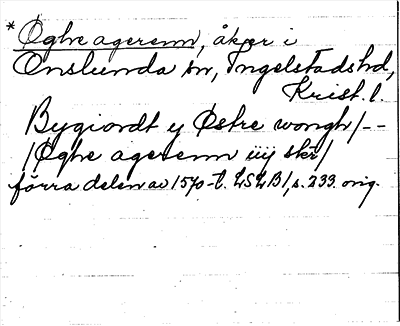 * Øghe agerenn, åker i
Onslunda sn, Ingelstads hd,
Krist. l.
Bygiordt y Østre wongh /--
/Øghe agerenn iiij skr/
förra delen av 1570-t. LSLB1, s. 233. orig.